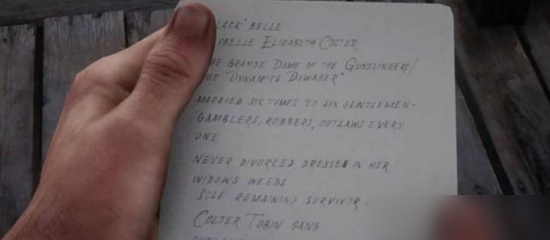 BLACK" BELLE
ELIZABETH COLTER
GRANDE DAME OF THE GUNSLINGERS/
"DYNAMITE DOWAGER"
MARRIED SIX TIMES TO SIX GENTLEMEN-
GAMBLERS, ROBBERS, OUTLAWS EVERY
ONE
NEVER DIVORCED DRESSES IN HER
WIDOWS WEEDS
SOLE REMAINING SURVIVOR
COLTER TOBIN GANG